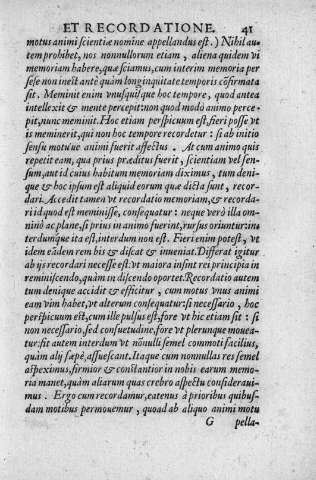 ET RECORDATIONE. 41
motus animi scientiæ nomine appellandus est.) Nihil au-
tem prohibet, nos nonnullorum etiam, aliena quidem vi
memoriam habere, quæ sciamus, cum interim memoria per
sese non inest antè quàm longinquitate temporis cōfirmata
sit. Meminit enim vnusquisque hoc tempore, quod antea
intellexit & mente percepit: non quod modo animo perce-
pit, nunc meminit. Hoc etiam perspicuum est, fieri posse vt
is meminerit, qui non hoc tempore recordetur: si ab initio
sensu motuue animi fuerit affectus. At cum animo quis
repetit eam, qua prius præditus fuerit, scientiam vel sen-
sum, aut id cuius habitum memoriam diximus, tum deni-
que & hoc ipsum est aliquid eorum quæ dicta sunt, recor-
dari. Accedit tamen vt recordatio memoriam, & recorda-
ri id quod est meminisse, consequatur: neque verò illa om-
ninò ac plane, si prius in animo fuerint, rursus oriuntur: in-
terdumque ita est, interdum non est. Fieri enim potest, vt
idem eādem rem bis & discat & inueniat. Differat igitur
ab ijs recordari necesse est: vt maiora insint rei principia in
reminiscendo, quàm in discendo oportet. Recordatio autem
tum denique accidit & efficitur, cum motus vnus animi
eam vim habet, vt alterum consequatur: si necessario, hoc
perspicuum est, cum ille pulsus est, fore vt hic etiam sit: si
non necessario, sed consuetudine, fore vt plerunque mouea-
tur: sit autem interdum vt nōnulli semel commoti facilius,
quàm alij sæpè, assuescant. Itaque cum nonnullas res semel
aspeximus, firmior & constantior in nobis earum memo-
ria manet, quàm aliarum quas crebro aspectu considerauí-
mus. Ergo cum recordamur, eatenus à prioribus quibus-
dam motibus permouemur, quoad ab aliquo animi motu
G pella-